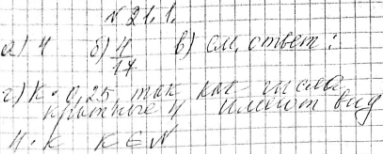 N 21.1.
а) 4 б) 4/17 в) см, ответ:
г) K · 0,25 так как числа
кратные 4 имеют вид
4 · K K ∈ N